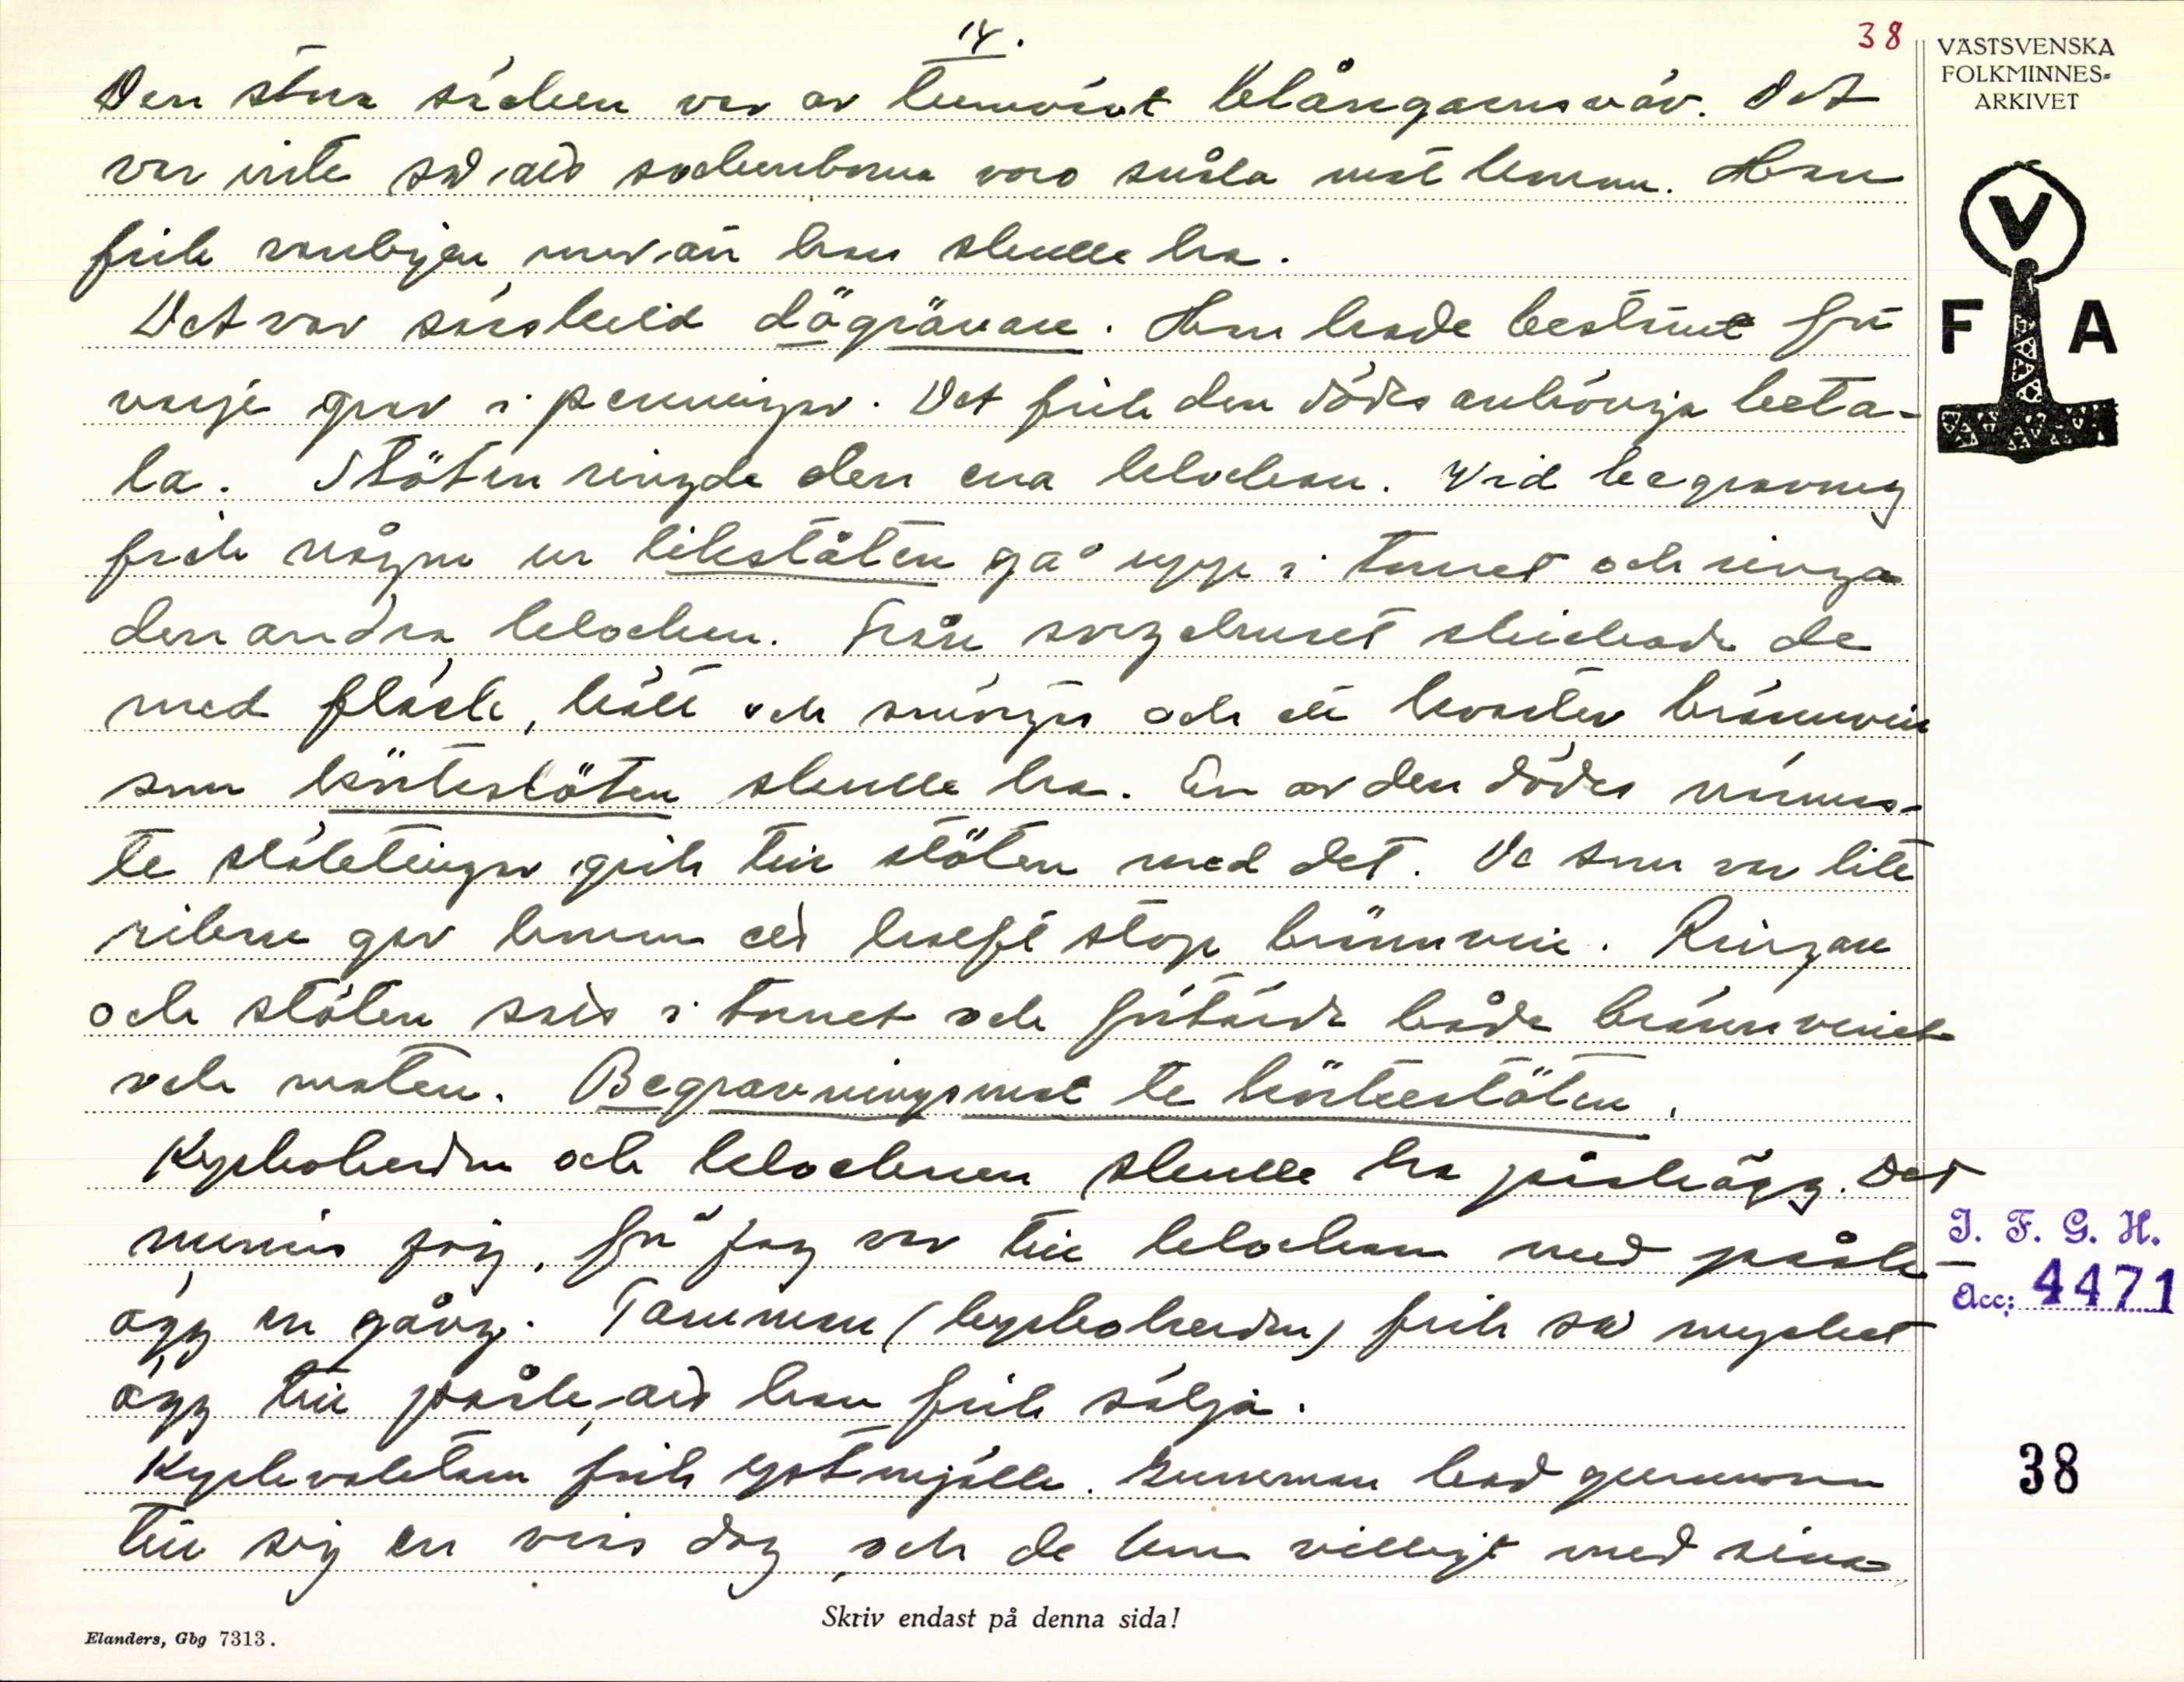 14.
38
VÄSTSVENSKA
FOLKMINNES-
ARKIVET
V
F A
Den stora säcken var av blångarnsväv. Det
var inte så att sockenborna voro snåla mot honom. Han
fick vanligen mer än han skulle ha.
Det var särskild dögrävare. Han hade bestämt för
varje grav i penningar. Det fick den dödes anhöriga beta-
la. Stöten ringde den ena klockan. Vid begravning
fick någon ur likstöten gå upp i tornet och ringa
den andra klockan. Från sorgehuset skickade de
med fläsk, kött och smörgås och ett kvarter brännvin
som körkestöten skulle ha. En av den dödes närmas-
te släktingar gick till stöten med det. De som var lite
rikare gav honom ett halft stop brännvin. Ringaren
och stöten satt i tornet och förtärde både brännvinet
och maten. Begravningsmat te körkestöten.
Kyrkoherden och klockaren skulle ha påskägg. Det
minns jag, för jag var till klockaren med påsk-
ägg en gång. Farmmen (kyrkoherden) fick så mycket
ägg till påsk, att han fick sälja.
Kyrkvaktaren fick ystmjölk. Gumman bad gummorna
till sig en viss dag, och de kom villigt med sina
I. F. G. H.
Acc: 4471
38
Skriv endast på denna sida!
Elanders, Gbg 7313.